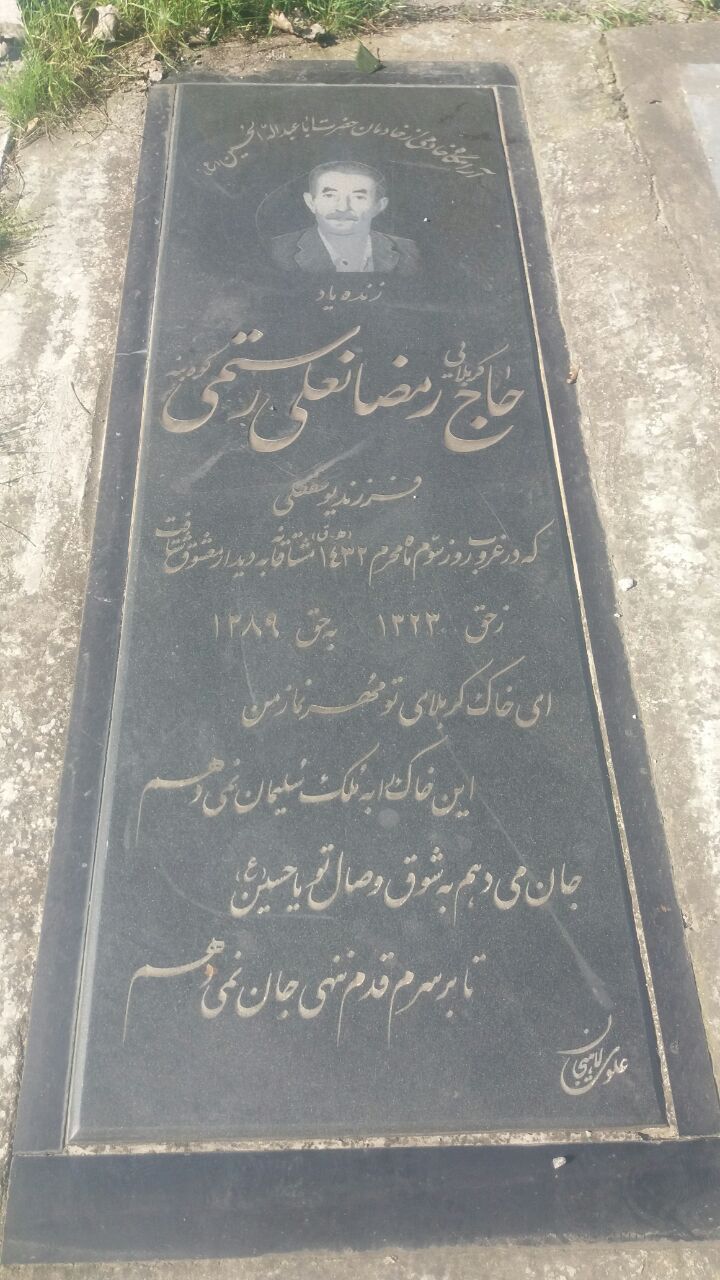 آرامگاه خادمی از خادمان حضرت اباعبدالله الحسین (ع)
زنده یاد
حاج کربلایی رمضانعلی رستمی کودهنه
فرزند یوسفعلی
که در غروب روز سوم ماه محرم ۱۴۳۲ (ه.ق) مشتاقانه به دیدار معشوق شتافت
ز حق ۱۳۲۳ به حق ۱۳۸۹
ای خاک کربلای تو مهر نماز من
این خاک را به ملک سلیمان نمی دهم
جان می دهم به شوق وصال تو یا حسین (ع)
تا بر سرم قدم ننهی جان نمی دهم
علوی لاهیجان